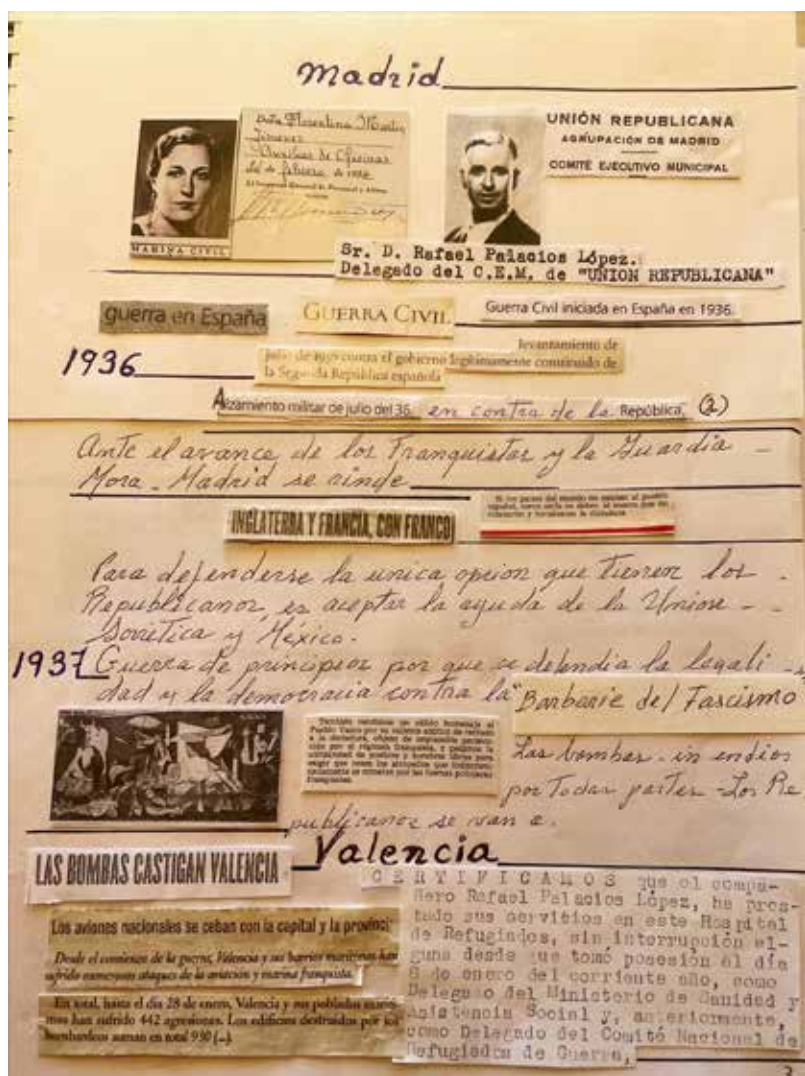 Madrid
Doña Florentina Martín
Jimenez
Auxiliar de Oficinas
de febrero de
El Inspector General de Personal y Alistamiento
MARINA CIVIL
UNIÓN REPUBLICANA
AGRUPACIÓN DE MADRID
COMITÉ EJECUTIVO MUNICIPAL
Sr. D. Rafael Palacios López.
Delegado del C.E.M. de "UNION REPUBLICANA"
guerra en España
GUERRA CIVIL
Guerra Civil iniciada en España en 1936.
1936
levantamiento de
julio de 1936 contra el gobierno legítimamente constituido de
la Segunda República española
Alzamiento militar de julio del 36, en contra de la República, (2)
Ante el avance de los Franquistas y la Guardia -
Mora - Madrid se rinde
INGLATERRA Y FRANCIA, CON FRANCO
Para defenderse la unica opcion que tienen los -
Republicanos, es aceptar la ayuda de la Union - -
Sovietica y México.
1937 Guerra de principios por que se defendia la legali -
dad y la democracia contra la "Barbarie del Fascismo
También rendimos un cálido homenaje al
Pueblo Vasco por su valiente actitud de rechazo
a la dictadura, objeto de
por el régimen franquista, y pedimos la
de pueblos y hombres libres para
exigir que cesen los atropellos que
se cometen por las fuerzas policiacas
franquistas.
Las bombas - in endios
por Todas partes - Los Re
publicanos se van a.
Valencia
LAS BOMBAS CASTIGAN VALENCIA
Los aviones nacionales se ceban con la capital y la provinci
Desde el comienzo de la guerra, Valencia y sus barrios marítimos han
sufrido numerosos ataques de la aviación y marina franquista.
En total, hasta el día 28 de enero, Valencia y sus poblados maríti-
mos han sufrido 442 agresiones. Los edificios destruidos por los
bombardeos suman en total 930 (...).
CERTIFICAMOS que el compa-
ñero Rafael Palacios López, ha pres-
tado sus servicios en este Hospital
de Refugiados, sin interrupción al-
guna desde que tomó posesión el día
8 de enero del corriente año, como
Delegado del Ministerio de Sanidad y
Asistencia Social y, anteriormente,
como Delegado del Comité Nacional de
Refugiados de Guerra,